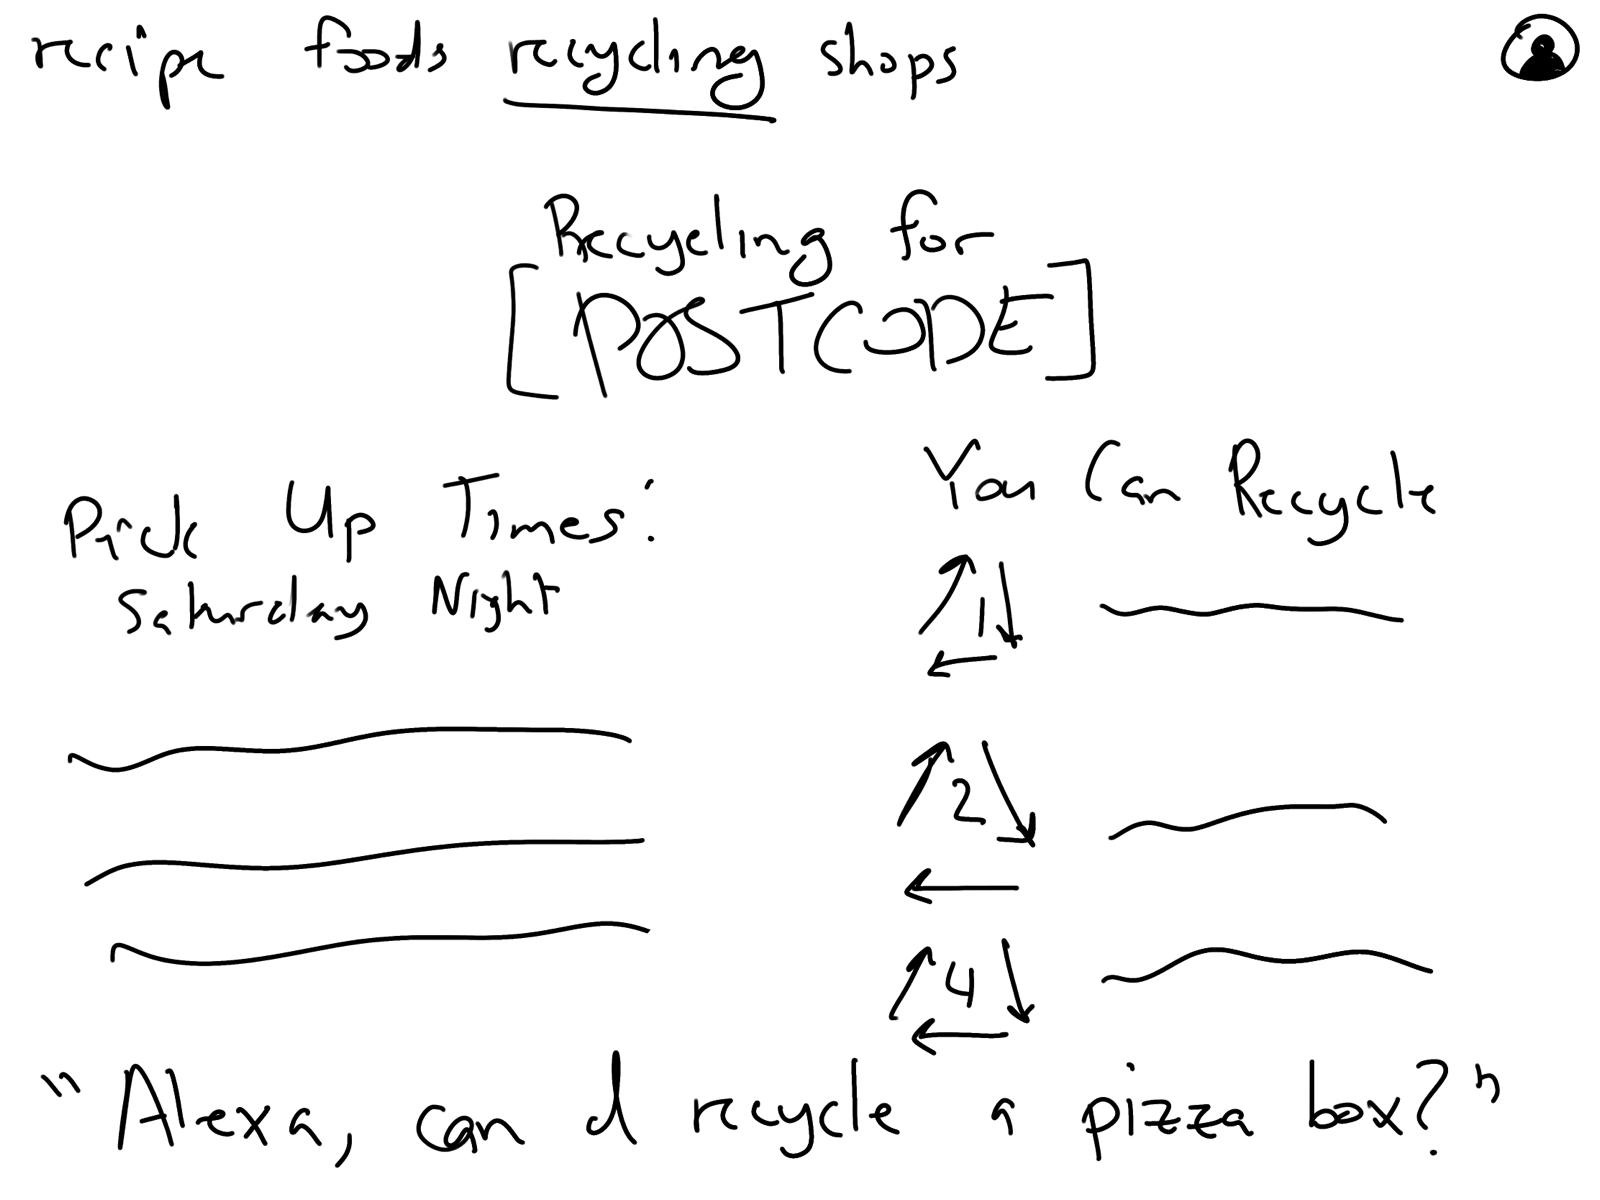 recipe foods recycling shops
Recycling for
[POSTCODE]
Pick Up Times:
Saturday Night
You Can Recycle
1
2
4
"Alexa, can I recycle a pizza box?"